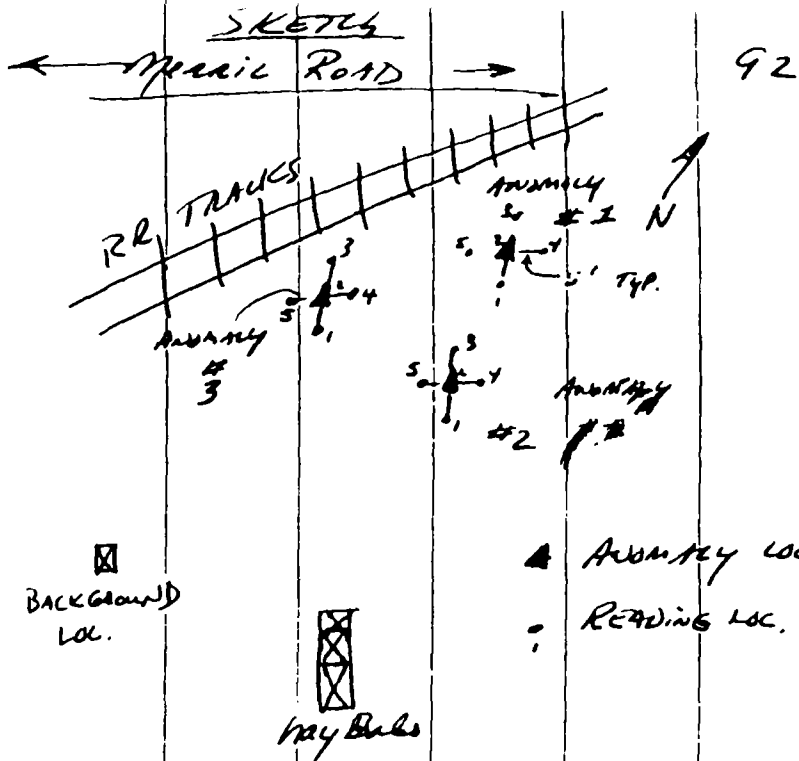 SKETCH
Merric Road
92
RR TRACKS
ANOMALY
#1
N
3
5 2 4
1
5' TYP.
3
5 2 4
1
ANOMALY
#
3
3
5 2 4
1
ANOMALY
#2
BACKGROUND
LOC.
ANOMALY LOC
READING LOC.
1
Hay Bales